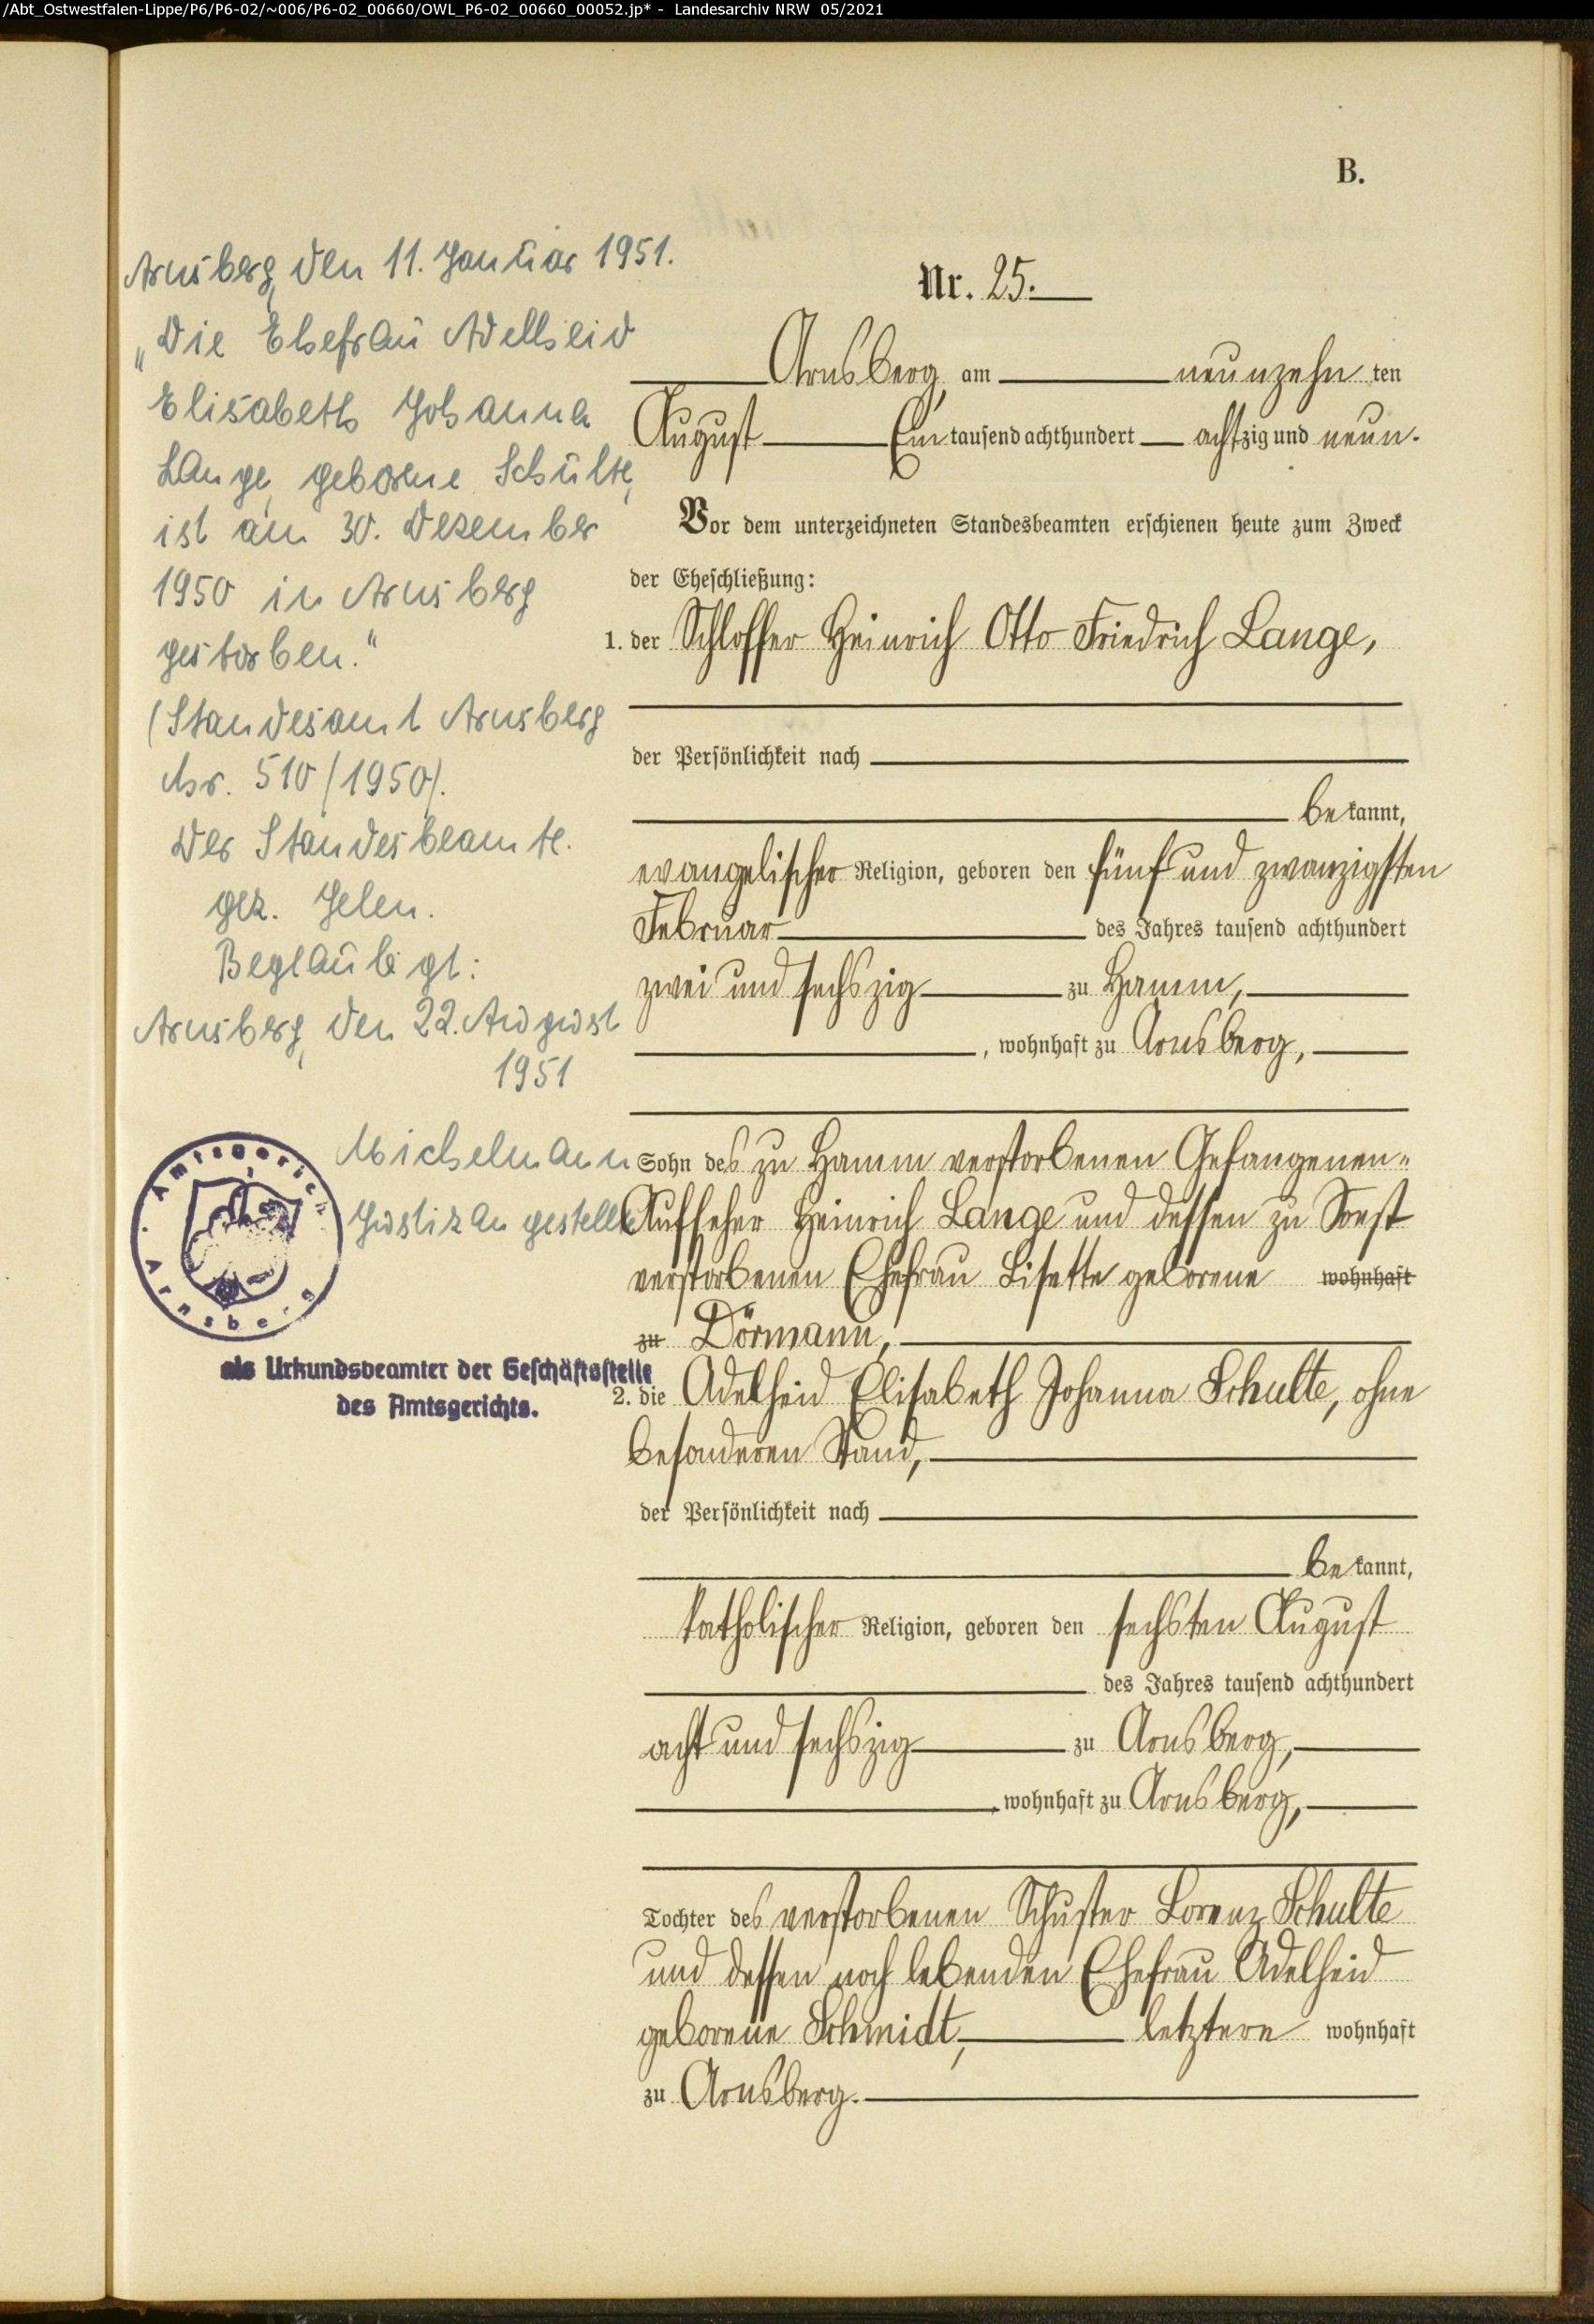 /Abt_Ostwestfalen-Lippe/P6/P6-02/~006/P6-02_00660/OWL_P6-02_00660_00052.jp* - Landesarchiv NRW 05/2021
B.
Arnsberg, den 11. Januar 1951.
„Die Ehefrau Adelheid
Elisabeth Johanna
Lange, geborene Schulte,
ist am 30. Dezember
1950 in Arnsberg
gestorben.“
(Standesamt Arnsberg
Nr. 510/1950).
Der Standesbeamte.
gez. Jelen.
Beglaubigt:
Arnsberg, den 22. August
1951
Michelmann
Justizangestellte
Amtsgericht
Arnsberg
als Urkundsbeamter der Geschäftsstelle
des Amtsgerichts.
Nr. 25.
Arnsberg, am neunzehn ten
August Ein tausend achthundert achtzig und neun.
Vor dem unterzeichneten Standesbeamten erschienen heute zum Zweck
der Eheschließung:
1. der Schlosser Heinrich Otto Friedrich Lange,
der Persönlichkeit nach
be kannt,
evangelischer Religion, geboren den fünf und zwanzigsten
Februar des Jahres tausend achthundert
zwei und sechszig zu Hamm,
, wohnhaft zu Arnsberg,
Sohn des zu Hamm verstorbenen Gefangenen-
Aufseher Heinrich Lange und dessen zu Soest
verstorbenen Ehefrau Lisette geborene wohnhaft
zu Dörmann,
2. die Adelheid Elisabeth Johanna Schulte, ohne
besonderen Stand,
der Persönlichkeit nach
be kannt,
katholischer Religion, geboren den sechsten August
des Jahres tausend achthundert
acht und sechszig zu Arnsberg,
, wohnhaft zu Arnsberg,
Tochter des verstorbenen Schuster Lorenz Schulte
und dessen noch lebenden Ehefrau Adelheid
geborene Schmidt, letztere wohnhaft
zu Arnsberg.